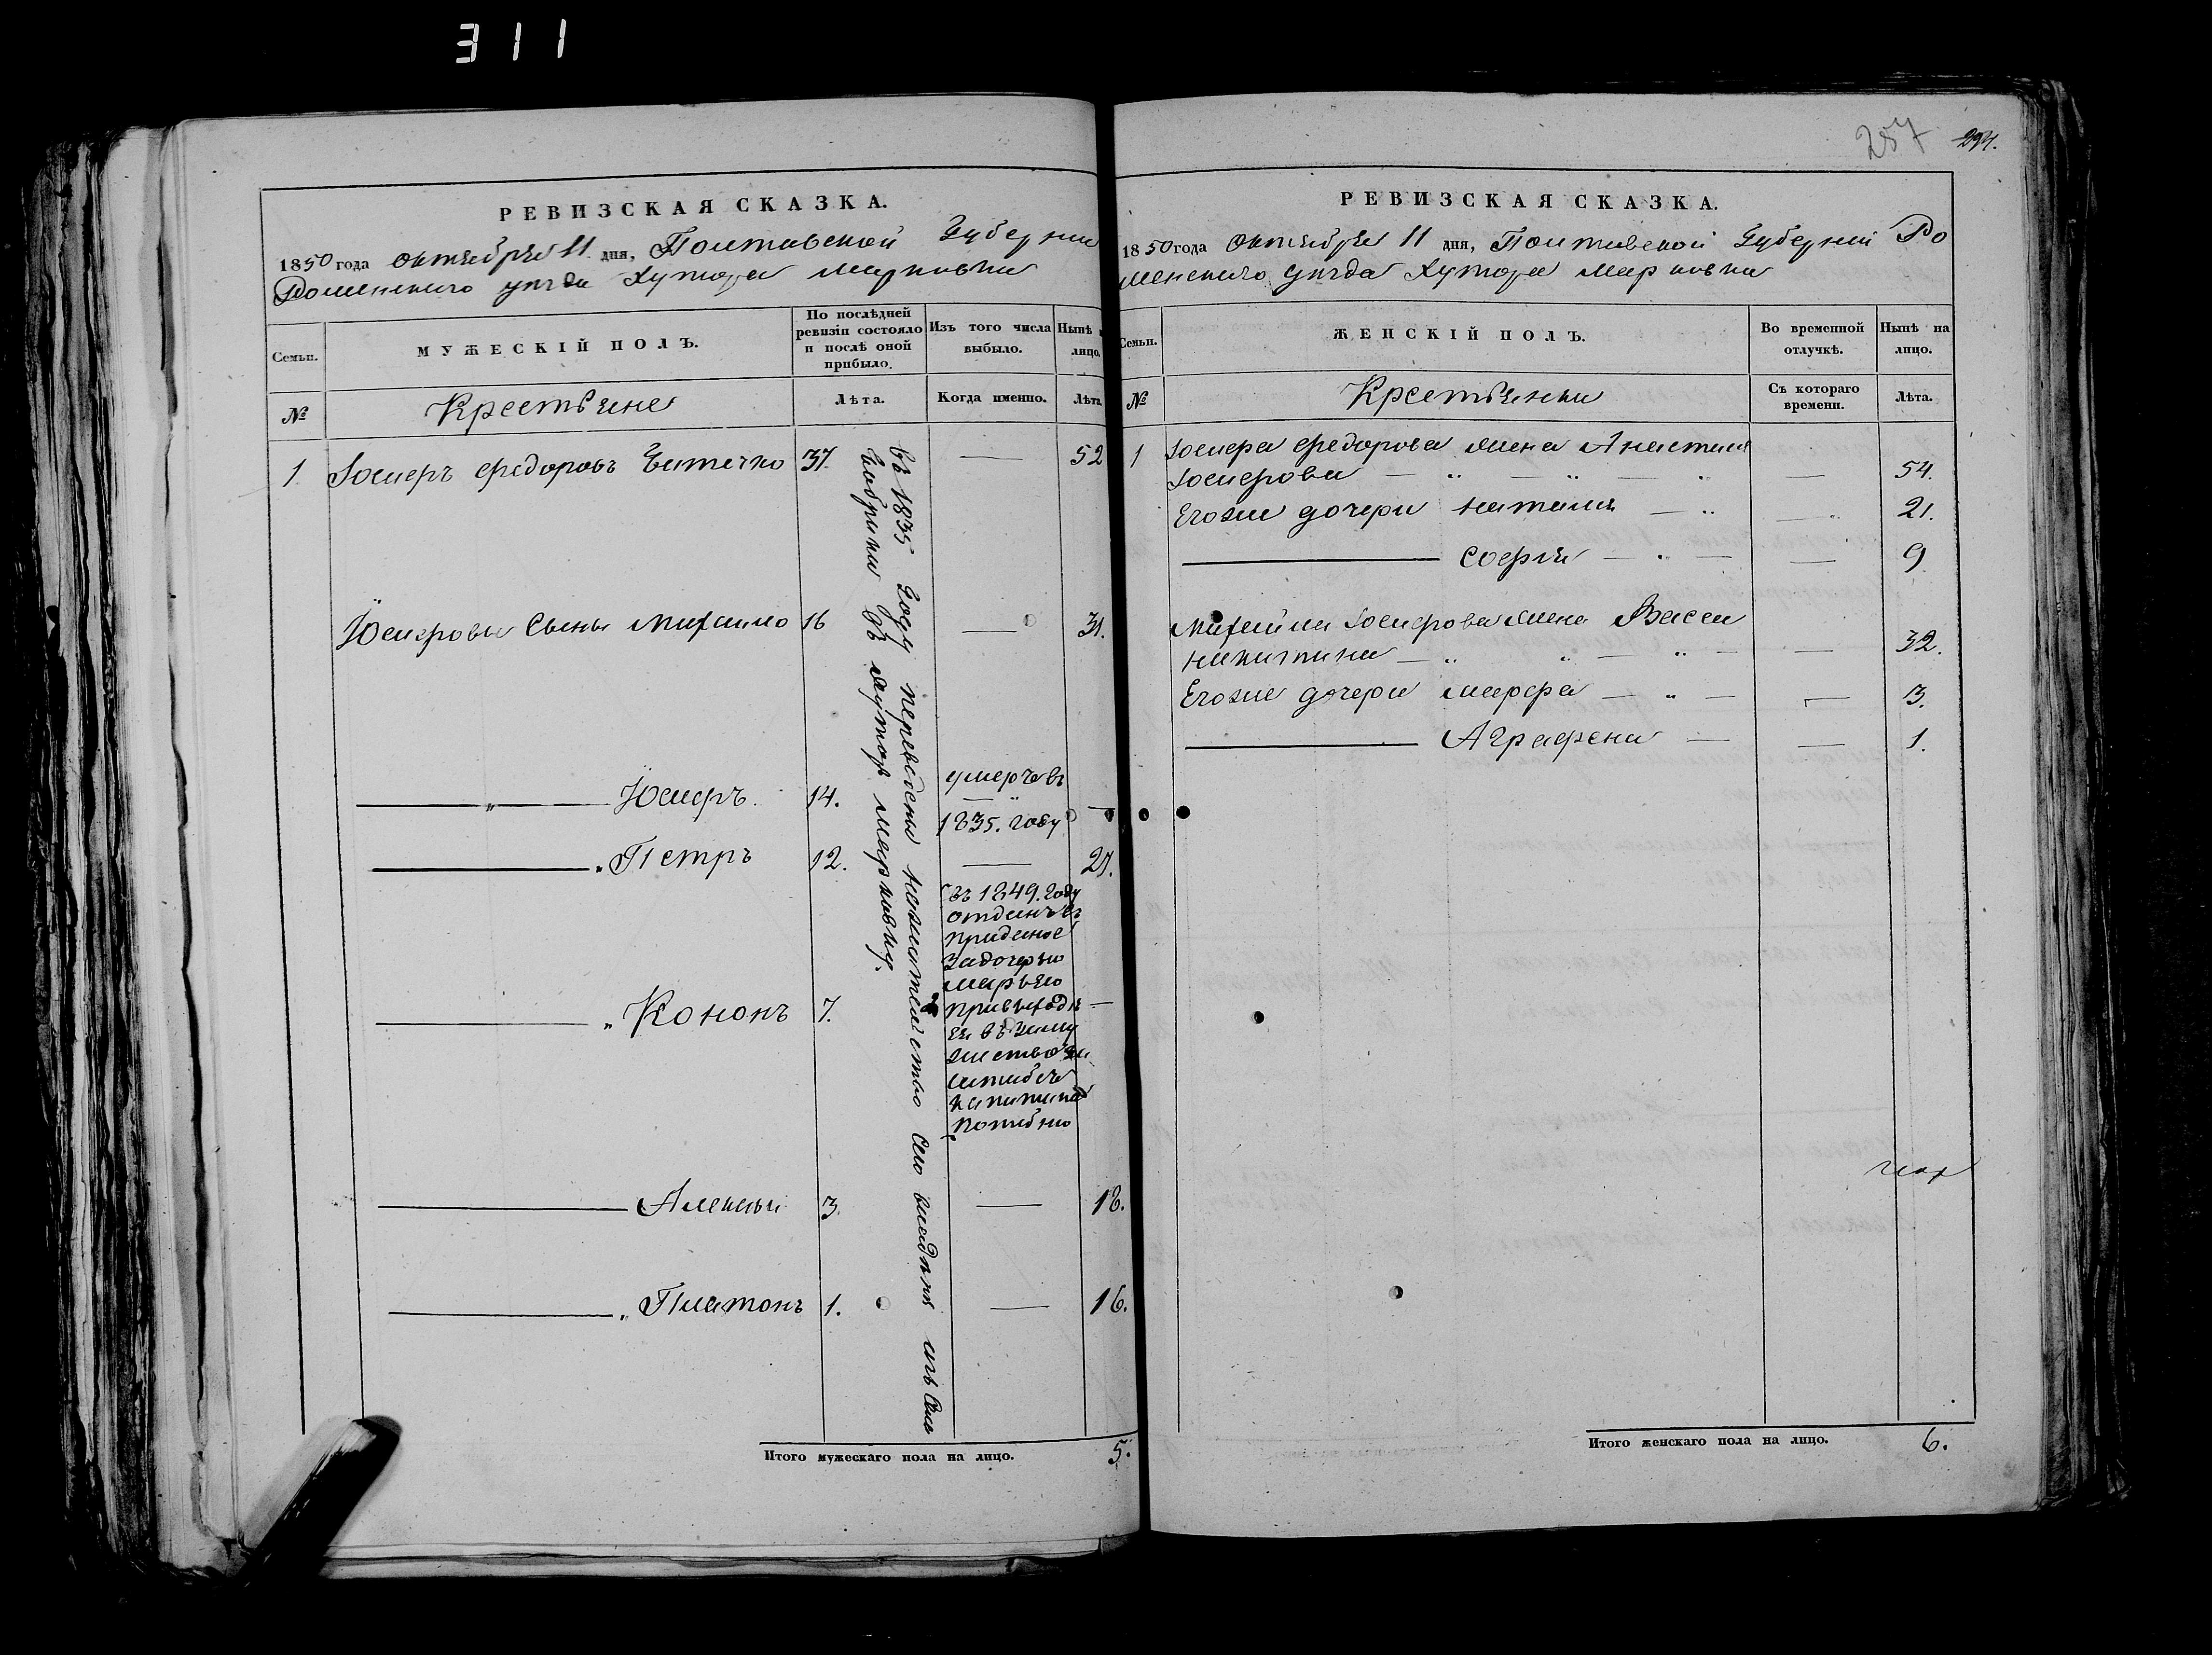 311
РЕВИЗСКАЯ СКАЗКА.
1850 года октября 11 дня, Полтавской Губернии
Роменского уезда Хутора Марковки
Семьи.
МУЖЕСКІЙ ПОЛЪ.
По послѣдней ревизіи состояло и послѣ оной прибыло.
Изъ того числа выбыло.
Нынѣ
лицо.
№
Крестьяне
Лѣта.
Когда именно.
Лѣта
1
Іосифъ Федоровъ
37.
—
52
Іосифовы Сыны Михайло
16
—
31.
— " — Іосифъ.
14.
умеръ въ
1835. году
—
— " Петръ
12.
—
27.
— " Кононъ
7.
въ 1849. году
отданъ въ
приданое
за дочерью
Марьею
при выходѣ
Ея въ заму
жество за
Капитана
—
— Алексѣй
3.
—
18.
— " Платонъ
1.
—
16.
въ 1835 году переведены на жительство сего владѣнія изъ Села
въ хутор Марковку.
Итого мужескаго пола на лицо.
5.
257
РЕВИЗСКАЯ СКАЗКА.
1850 года Октября 11 дня, Полтавской Губерніи Ро
менского уезда Хутора Марковки
Семьи.
ЖЕНСКІЙ ПОЛЪ.
Во временной отлучкѣ.
Нынѣ на лицо.
№
Крестьянки
Съ котораго времени.
Лѣта.
1
Іосифа Федорова жена Анастасия
Іосифова — " — " — "
—
54.
Его же дочери Наталия — "
—
21.
— София — " —
—
9
Михайла Іосифова жена Васса
Никитина — " " — " —
—
32.
Его же дочери Марфа — " —
—
3.
— Аграфена —
—
1.
Итого женскаго пола на лицо.
6.